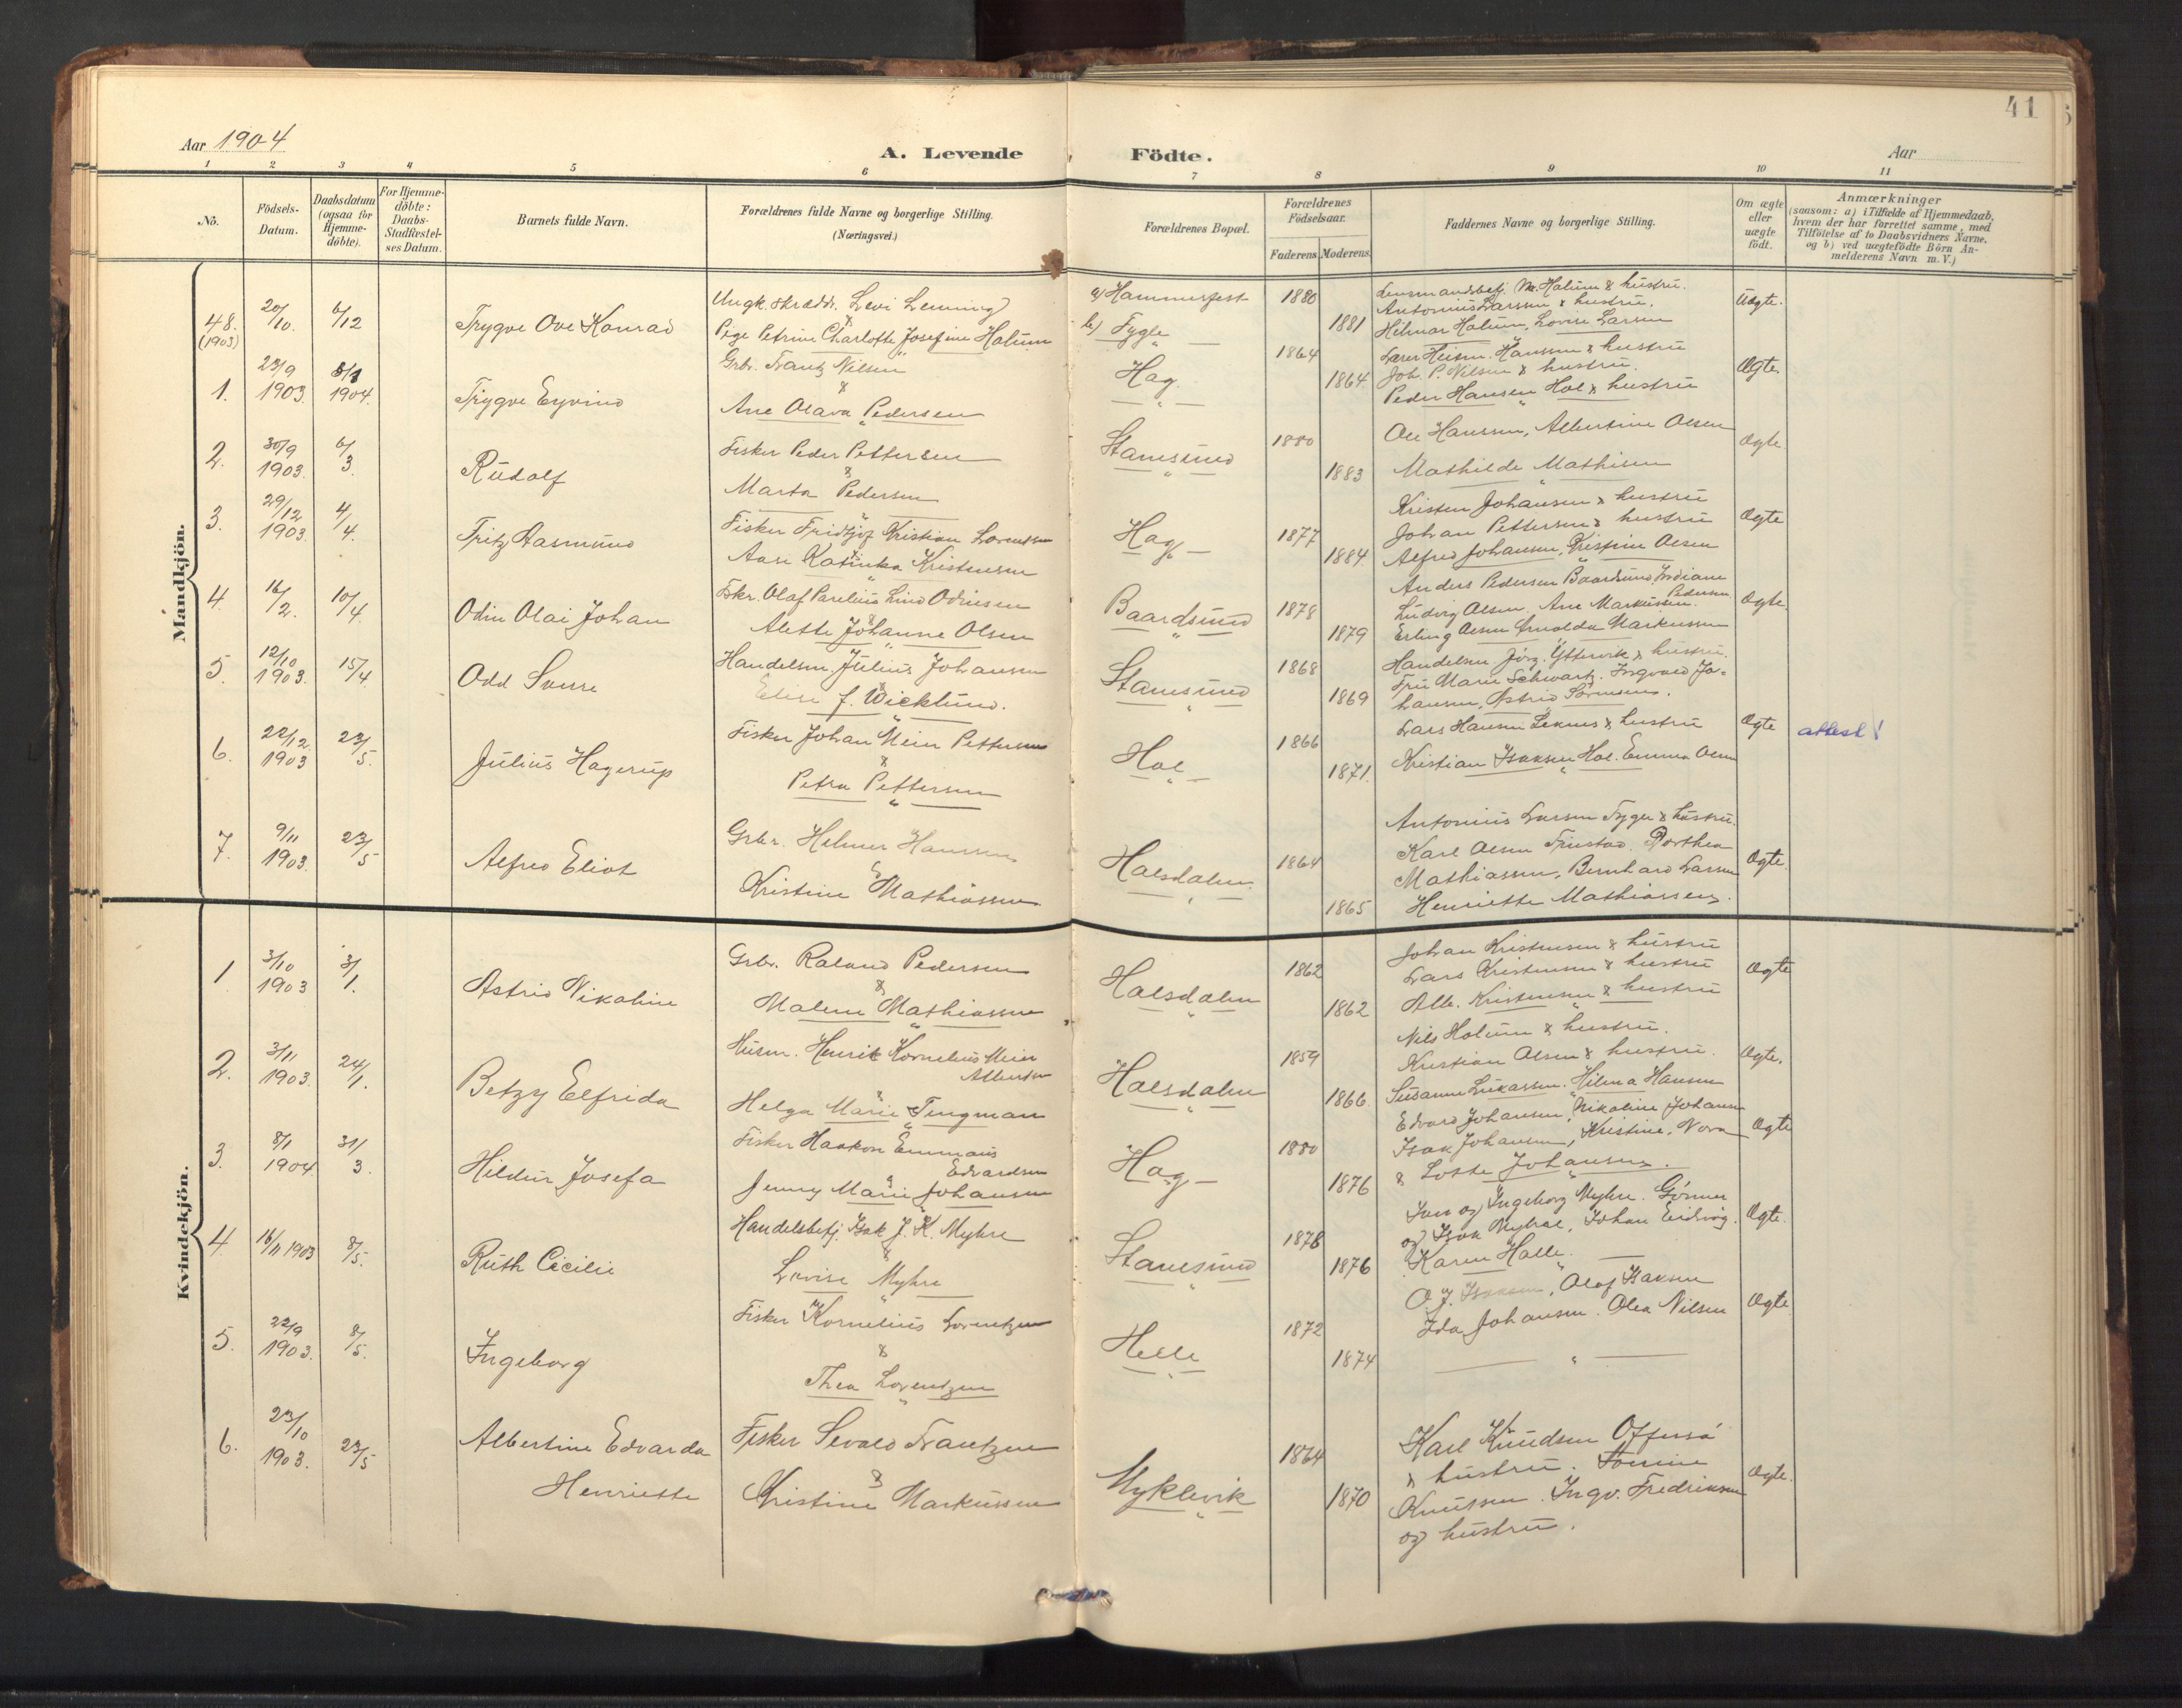 41
Aar 1904
A. Levende Födte.
Aar
1 2 3 4 5 6 7 8 9 10 11
No.
Födsels-
Datum.
Daabsdatum
(ogsaa for
Hjemme-
döbte).
For Hjemme-
döbte:
Daabs-
Stadfestel-
ses Datum.
Barnets fulde Navn.
Forældrenes fulde Navne og borgerlige Stilling.
(Næringsvei.)
Forældrenes Bopæl.
Forældrenes
Födselsaar.
Faderens Moderens
Faddernes Navne og borgerlige Stilling.
Om ægte
eller
uægte
födt.
Anmærkninger
(saasom: a) i Tilfælde af Hjemmedaab,
hvem der har forrettet samme, med
Tilföielse af to Daabsvidners Navne,
og b) ved uægtefödte Börn An-
melderens Navn m. V.)
Mandkjön.
48. (1903)
20/10.
6/12
Trygve Ove Konrad
Ungk. skrædd. Levi Lemming
&
Pige Petrine Charlotte Josefine Halum
a) Hammerfest
b) Fygle
1880
1881
Lensmandsbetj. M. Halum & hustru.
Antonius Larsen & hustru.
Hilmar Halum, Lovise Larsen
Uægte.
1.
23/9 1903
3/1 1904.
Trygve Eyvind
Grbr. Frantz Nilsen
&
Ane Olava Pedersen
Hag.
1864
1864
Lærer Heism. Hanssen & hustru
Joh. P. Nilsen & hustru.
Peder Hansen Hol & hustru
Ægte.
2.
30/9 1903.
6/3.
Rudolf
Fisker Peder Pettersen
&
Marta Pedersen
Stamsund
1880
1883
Ole Hanssen, Albertine Olsen
Mathilde Mathisen
Ægte.
3.
29/12 1903.
4/4.
Fritz Aasmund
Fisker Fridtjof Kristian Lorentsen
&
Aase Katinka Kristensen
Hag
1877
1884
Kristen Johansen & hustru
Johan Pettersen & hustru
Alfred Johansen, Kristine Olsen
Ægte
4.
16/2.
10/4.
Odin Olai Johan
Fskr. Olaf Parelius Lind Odinsen
&
Alette Johanne Olsen
Baardsund
1878
1879
Anders Pedersen Baardsund, Indiane
Pedersen
Ludvig Olsen. Ane Markussen.
Erling Olsen Arnolda Markussen
Ægte.
5.
12/10 1903.
15/4.
Odd Sverre
Handelsm. Julius Johansen
&
Elise J. Wicklund.
Stamsund
1868
1869
Handelsm. Jörg. Yttervik & hustru.
Fru Marie Schwartz. Ingvald Jo-
hansen, Astrid Sörensen.
Ægte
6.
22/12. 1903
23/5.
Julius Hagerup
Fisker Johan Meier Pettersen
&
Petra Pettersen
Hol
1866
1871.
Lars Hansen Leknes & hustru
Kristian Isaksen Hol. Emma Olsen
attest!
7.
9/11 1903.
23/5
Alfred Eliot
Grbr. Helmer Hanssen
&
Kristine Mathiassen
Halsdalen.
1864
1865
Antonius Larsen Fygle & hustru.
Karl Olsen Finstad. Dorthea
Mathiassen, Bernhard Larsen
Henriette Mathiassen.
Ægte.
Kvindekjön.
1
3/10 1903
3/1.
Astrid Nikoline
Grbr. Roland Pedersen
&
Malene Mathiassen
Halsdalen
1862
1862
Johan Kristensen & hustru
Lars Kristensen & hustru
Alb. Kristensen & hustru
Ægte
2.
3/11 1903.
24/1.
Betzy Elfrida
Husm. Henrik Kornelius Meier
Albertsen
&
Helga Marie Tengman
Halsdalen
1859
1866.
Nils Holum & hustru.
Kristian Olsen & hustru.
Susanne Lukassen. Hilma Hansen
Ægte.
3.
8/1 1904.
31/3.
Hildur Josefa
Fisker Haakon Emmaus
Edvardsen
&
Jenny Marie Johansen
Hag
1880
1876
Edvard Johansen, Nikoline Johansen
Isak Johansen, Kristine, Nora
& Lotte Johansen.
Ægte
4
16/11 1903
8/5.
Ruth Cicilie
Handelsbetj. Isak J. K. Myhre
&
Lovise Myhre
Stamsund
1878
1876
Iver og Ingeborg Myhre. Gunner
og Isak Myhre, Johan Eidsvig.
Karen Halle.
Ægte.
5.
22/9 1903.
8/5.
Ingeborg
Fisker Kornelius Lorentzen
&
Thea Lorentzen
Helle
1872
1874
O. J. Isaksen, Olaf Isaksen
Ida Johansen. Olea Nilsen
Ægte
6.
23/10 1903.
23/5
Albertine Edvarda
Henriette
Fisker Sevald Frantzen
&
Kristine Markussen
Myklevik
1864
1870
Karl Knudsen Offersö
& hustru.
Knutsen. Ingv. Fredriksen
og hustru.
Ægte.